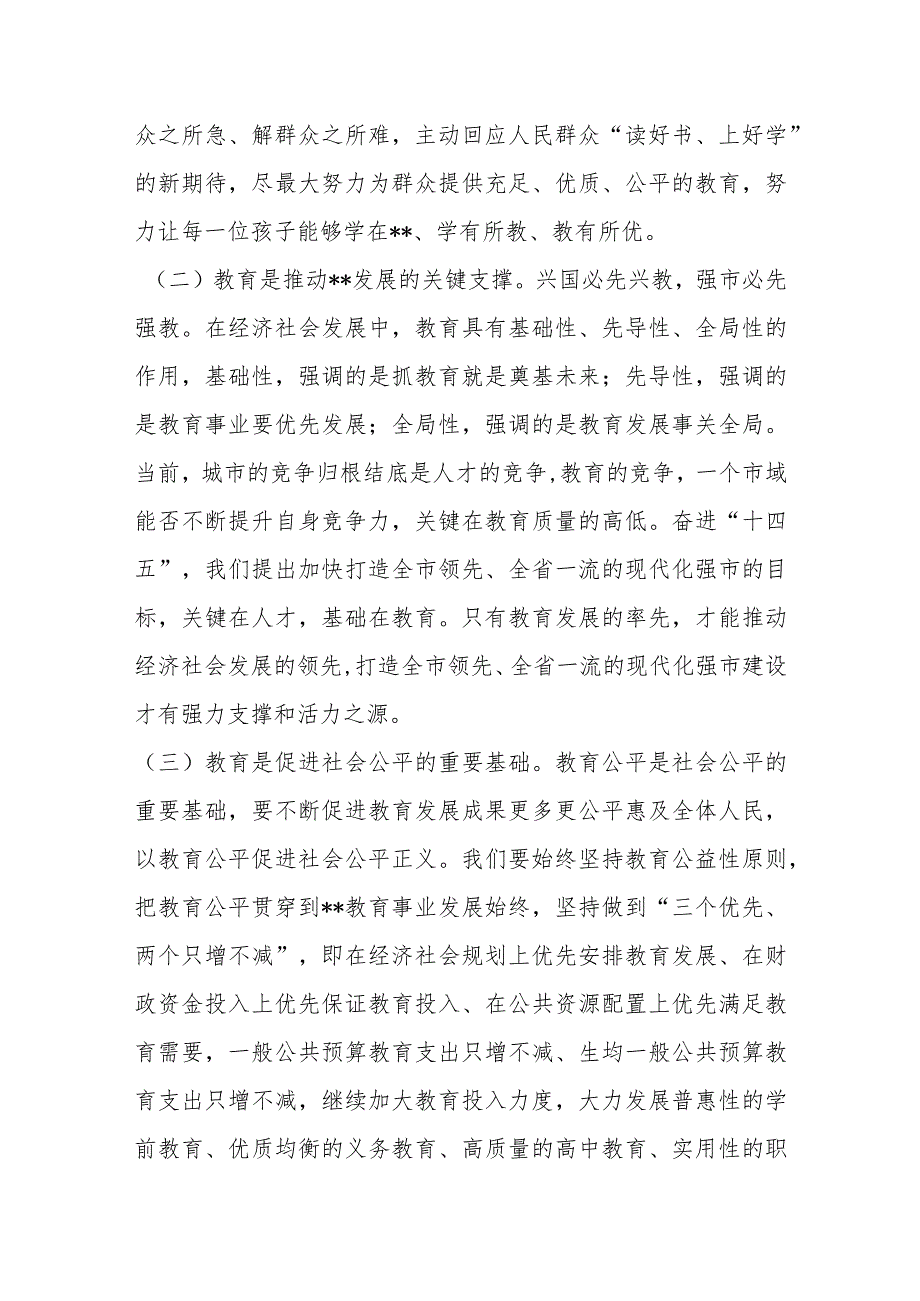 众之所急、解群众之所难，主动回应人民群众“读好书、上好学”
的新期待，尽最大努力为群众提供充足、优质、公平的教育，努
力让每一位孩子能够学在**、学有所教、教有所优。
（二）教育是推动**发展的关键支撑。兴国必先兴教，强市必先
强教。在经济社会发展中，教育具有基础性、先导性、全局性的
作用，基础性，强调的是抓教育就是奠基未来；先导性，强调的
是教育事业要优先发展；全局性，强调的是教育发展事关全局。
当前，城市的竞争归根结底是人才的竞争,教育的竞争，一个市域
能否不断提升自身竞争力，关键在教育质量的高低。奋进“十四
五”，我们提出加快打造全市领先、全省一流的现代化强市的目
标，关键在人才，基础在教育。只有教育发展的率先，才能推动
经济社会发展的领先,打造全市领先、全省一流的现代化强市建设
才有强力支撑和活力之源。
（三）教育是促进社会公平的重要基础。教育公平是社会公平的
重要基础，要不断促进教育发展成果更多更公平惠及全体人民，
以教育公平促进社会公平正义。我们要始终坚持教育公益性原则，
把教育公平贯穿到**教育事业发展始终，坚持做到“三个优先、
两个只增不减”，即在经济社会规划上优先安排教育发展、在财
政资金投入上优先保证教育投入、在公共资源配置上优先满足教
育需要，一般公共预算教育支出只增不减、生均一般公共预算教
育支出只增不减，继续加大教育投入力度，大力发展普惠性的学
前教育、优质均衡的义务教育、高质量的高中教育、实用性的职